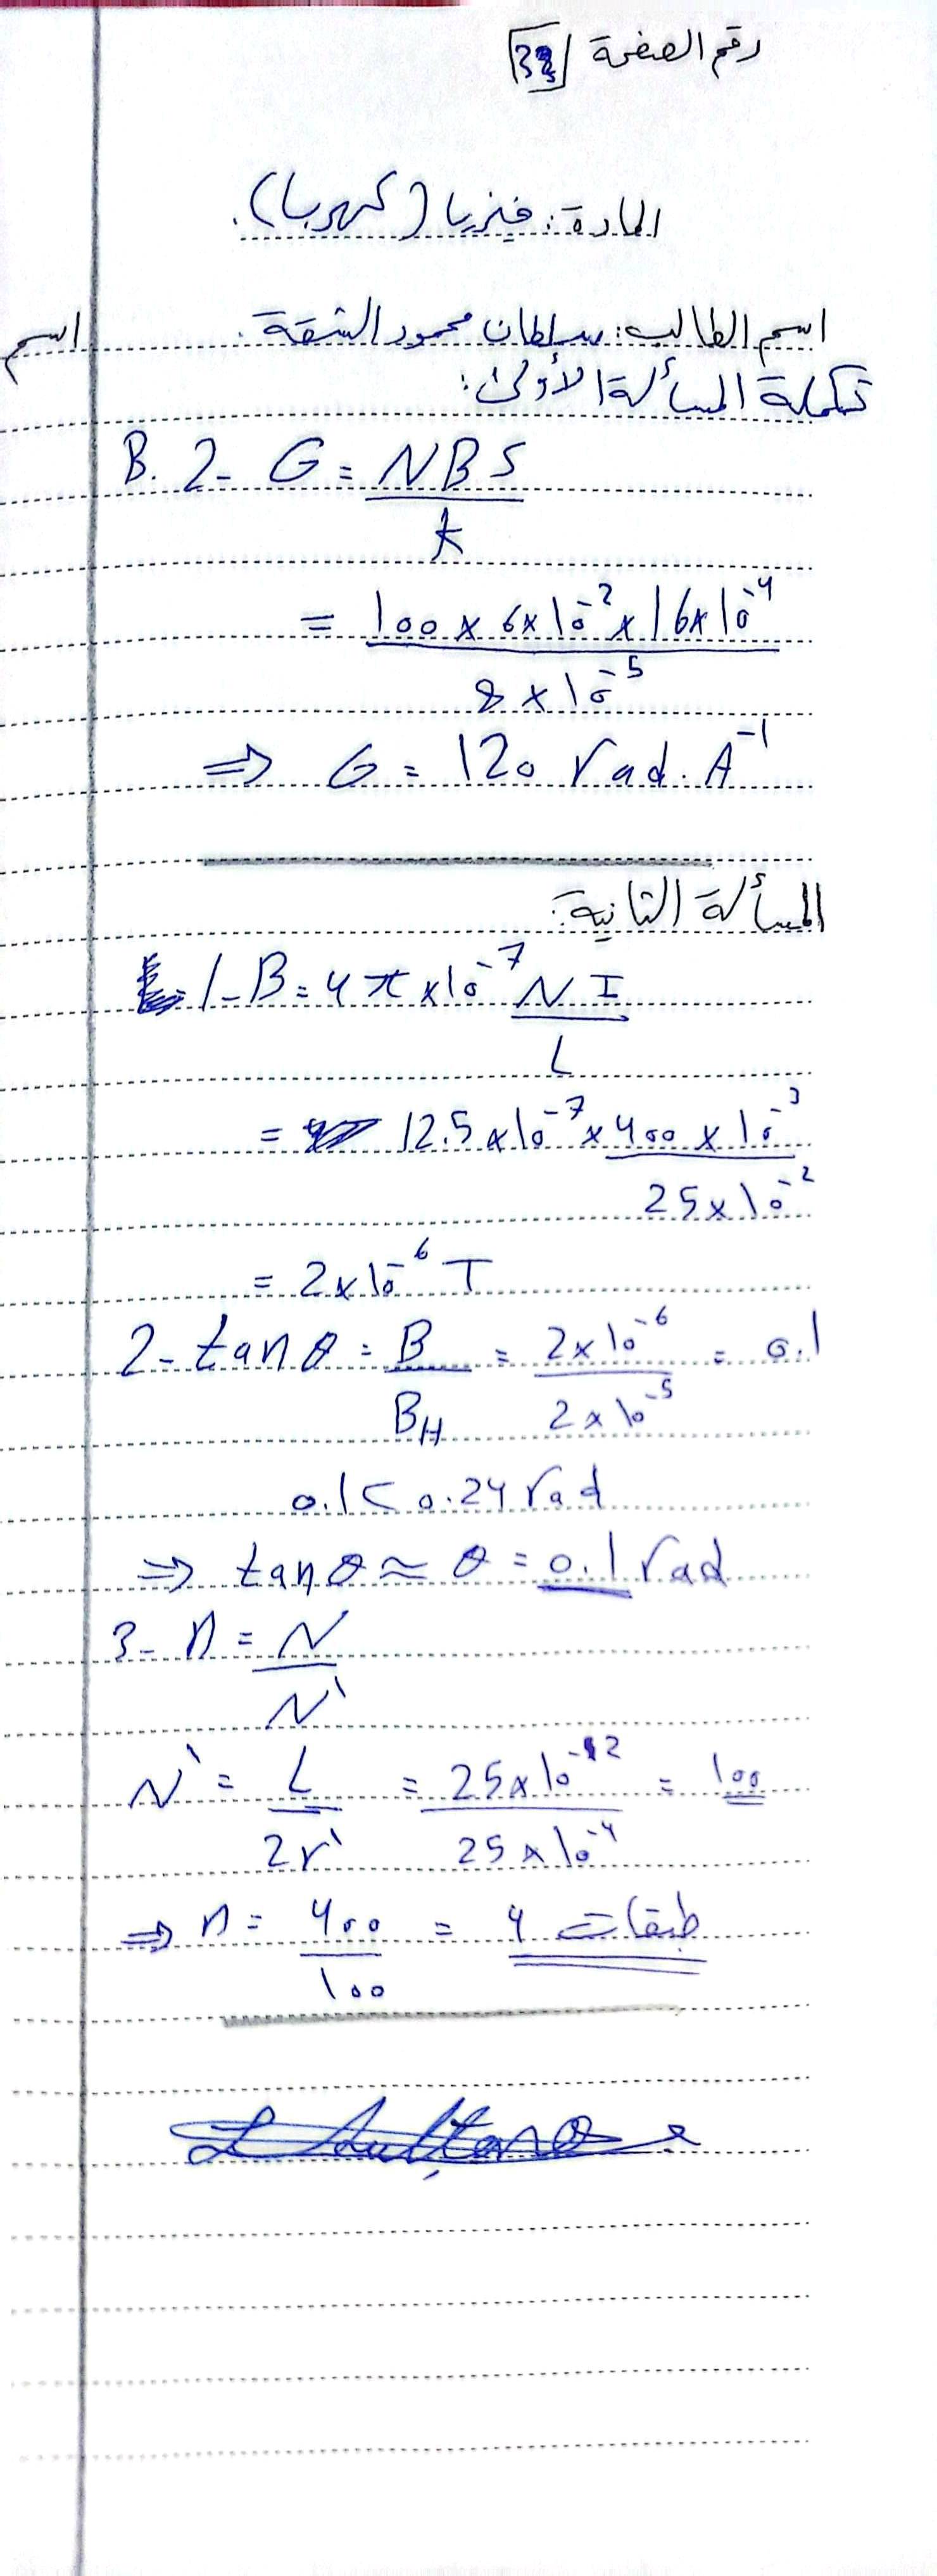 رقم الصفحة 3
المادة: فيزيا (كهربا).
اسم الطالب: سلطان محمود الشقة. اسم
تكملة المسألة الأولى:
B. 2- G = NBS / k
= 100 × 6×10^-2 × 16×10^-4 / 8 × 10^-5
⇒ G = 120 rad. A^-1
المسألة الثانية:
1- B = 4π×10^-7 NI / L
= 12.5×10^-7 × 400 × 10^-3 / 25×10^-2
= 2×10^-6 T
2- tanθ = B / B_H = 2×10^-6 / 2×10^-5 = 0.1
0.1 < 0.24 rad
⇒ tanθ ≈ θ = 0.1 rad
3- n = N / N'
N' = L / 2r' = 25×10^-2 / 25×10^-4 = 100
⇒ n = 400 / 100 = 4 طبقات